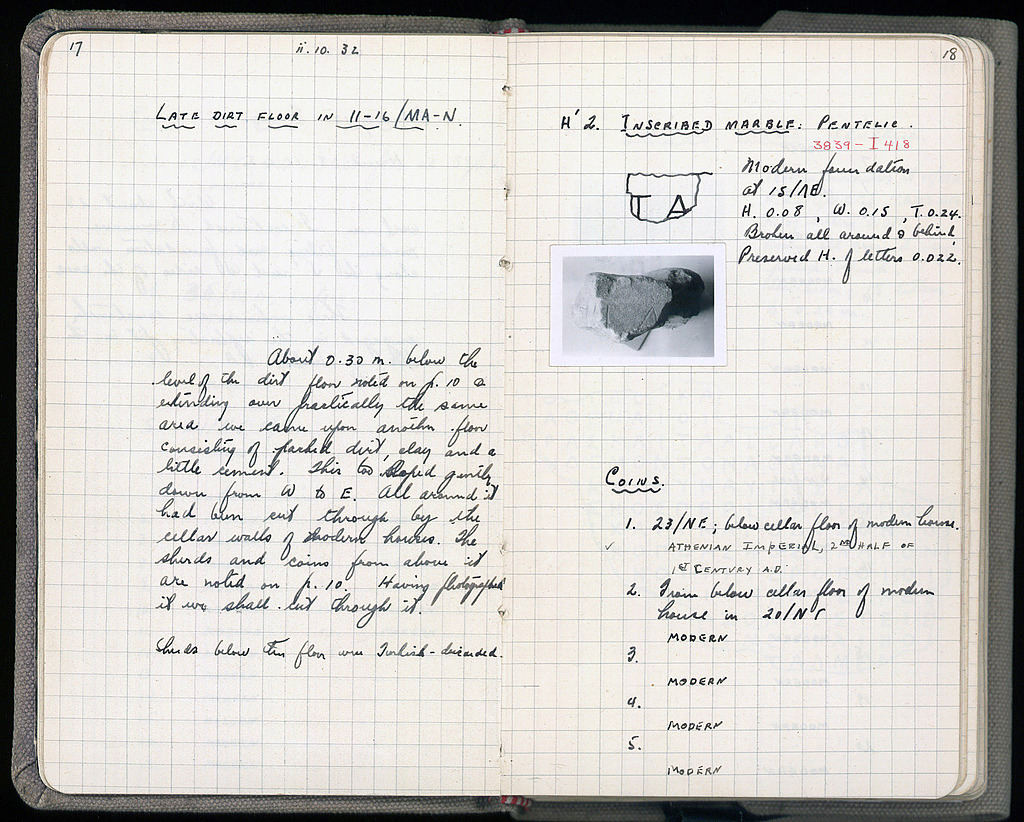 17
ii.10.32
LATE DIRT FLOOR IN 11-16/MA-N.
About 0.30 m. below the
level of the dirt floor noted on p. 10 &
extending over practically the same
area we came upon another floor
consisting of packed dirt, clay and a
little cement. This too sloped gently
down from W to E. All around it
had been cut through by the
cellar walls of modern houses. The
sherds and coins from above it
are noted on p. 10. Having photographed
it we shall cut through it.
Sherds below this floor were Turkish - discarded.
18
H' 2. INSCRIBED MARBLE: PENTELIC.
3839 - I 418
Modern foundation
at 15/ΛE.
H. 0.08, W. 0.15, T. 0.24.
Broken all around & behind.
Preserved H. of letters 0.022.
T A
COINS.
1. 23/NE; below cellar floor of modern house.
✓ ATHENIAN IMPERIAL, 2ND HALF OF
1ST CENTURY A.D.
2. From below cellar floor of modern
house in 20/
MODERN
3.
MODERN
4.
MODERN
5.
MODERN